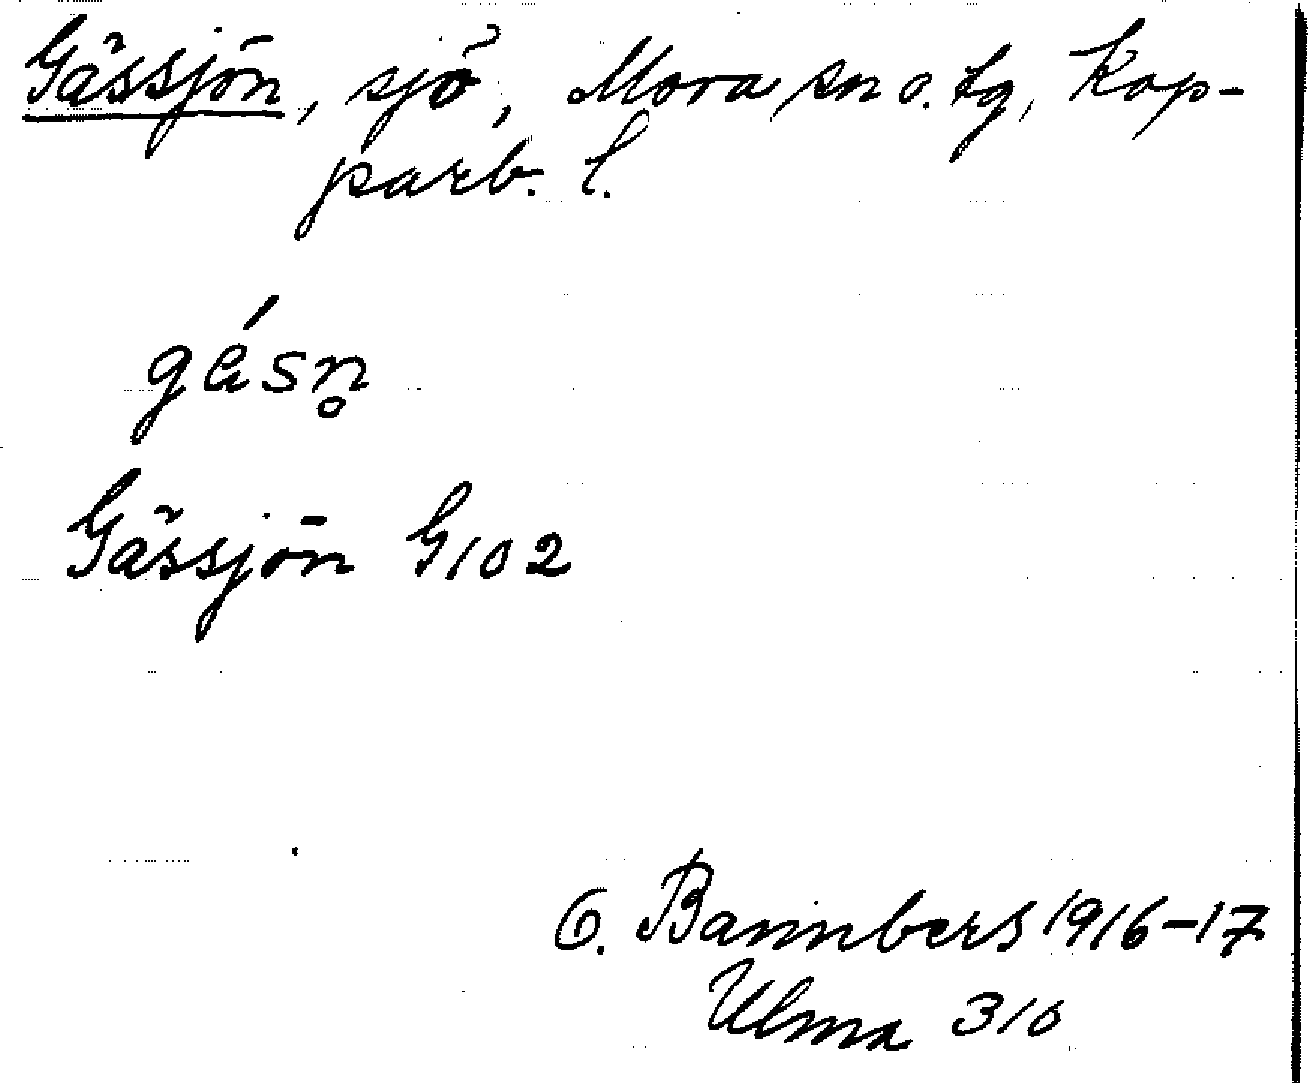 Gässjön, sjö, Mora sn o. tg, Kop-
parb. l.
gä́sn̥
Gässjön G102
O. Bannbers 1916-17
Ulma 310